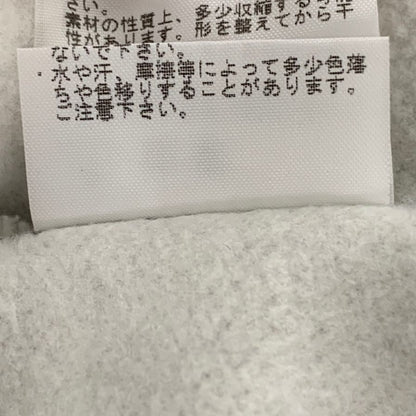 さい。
素材の性質上、多少収縮する
性があります。形を整えてから干
ないで下さい。
.水や汗、摩擦等によって多少色落
ちや色移りすることがあります。
ご注意下さい。